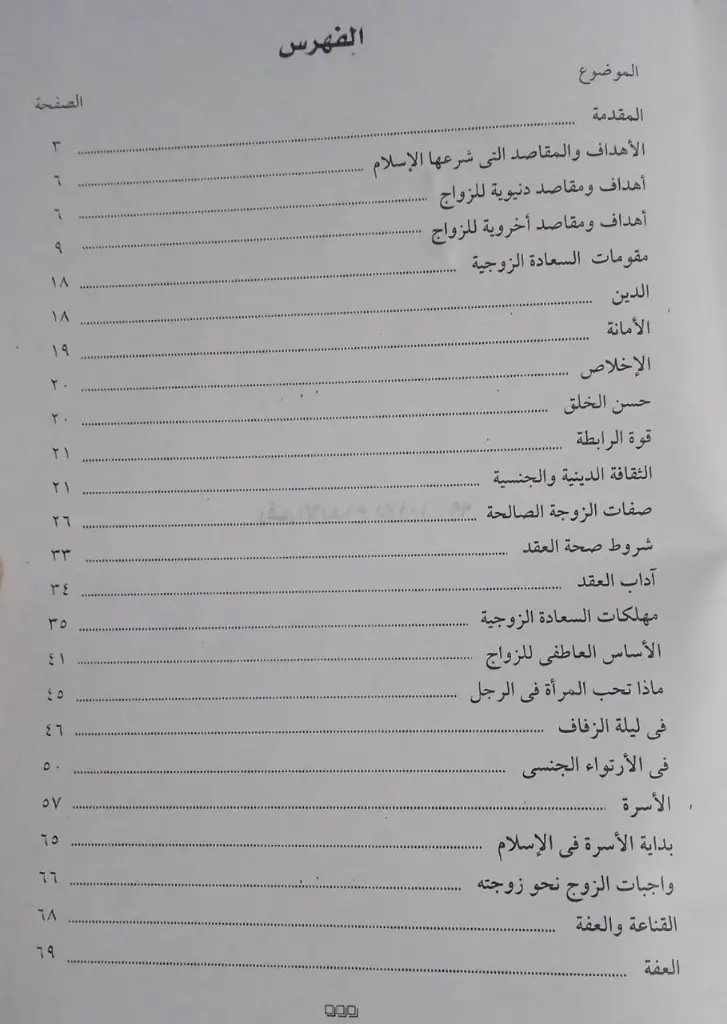 الفهرس
الموضوع
الصفحة
المقدمة ٣
الأهداف والمقاصد التى شرعها الإسلام ٦
أهداف ومقاصد دنيوية للزواج ٦
أهداف ومقاصد أخروية للزواج ٩
مقومات السعادة الزوجية ١٨
الدين ١٨
الأمانة ١٩
الإخلاص ٢٠
حسن الخلق ٢٠
قوة الرابطة ٢١
الثقافة الدينية والجنسية ٢١
صفات الزوجة الصالحة ٢٦
شروط صحة العقد ٣٣
آداب العقد ٣٤
مهلكات السعادة الزوجية ٣٥
الأساس العاطفى للزواج ٤١
ماذا تحب المرأة فى الرجل ٤٥
فى ليلة الزفاف ٤٦
فى الأرتواء الجنسى ٥٠
الأسرة ٥٧
بداية الأسرة فى الإسلام ٦٥
واجبات الزوج نحو زوجته ٦٦
القناعة والعفة ٦٨
العفة ٦٩